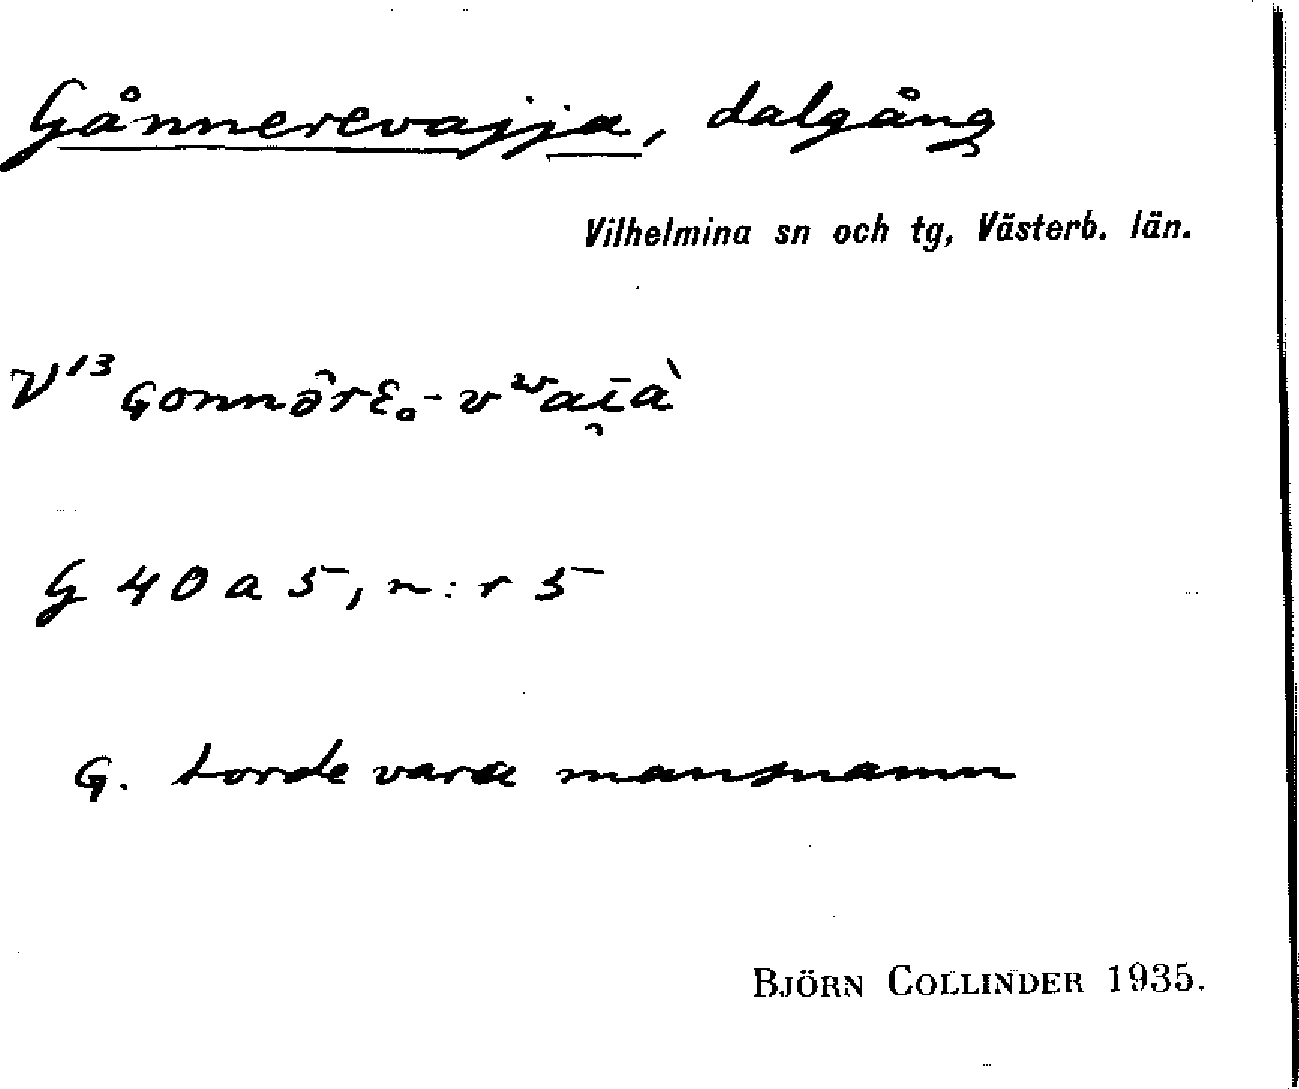 Gånnerevajja, dalgång
Vilhelmina sn och tg, Västerb. län.
V¹³ Gonnə̑rɛₒ-vʷaī̯à
G 40 a 5, n:r 5
G. torde vara mansnamn
BJÖRN COLLINDER 1935.